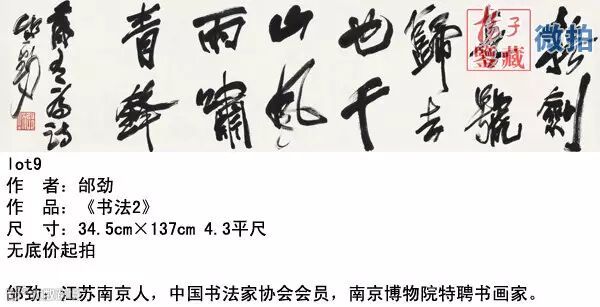 撫劍
長號
歸去
也千
山風
雨嘯
青鋒
康有為詩
邰勁
子
鉴藏
微拍
lot9
作 者：邰劲
作 品：《书法2》
尺 寸：34.5cm×137cm 4.3平尺
无底价起拍
邰劲：江苏南京人，中国书法家协会会员，南京博物院特聘书画家。